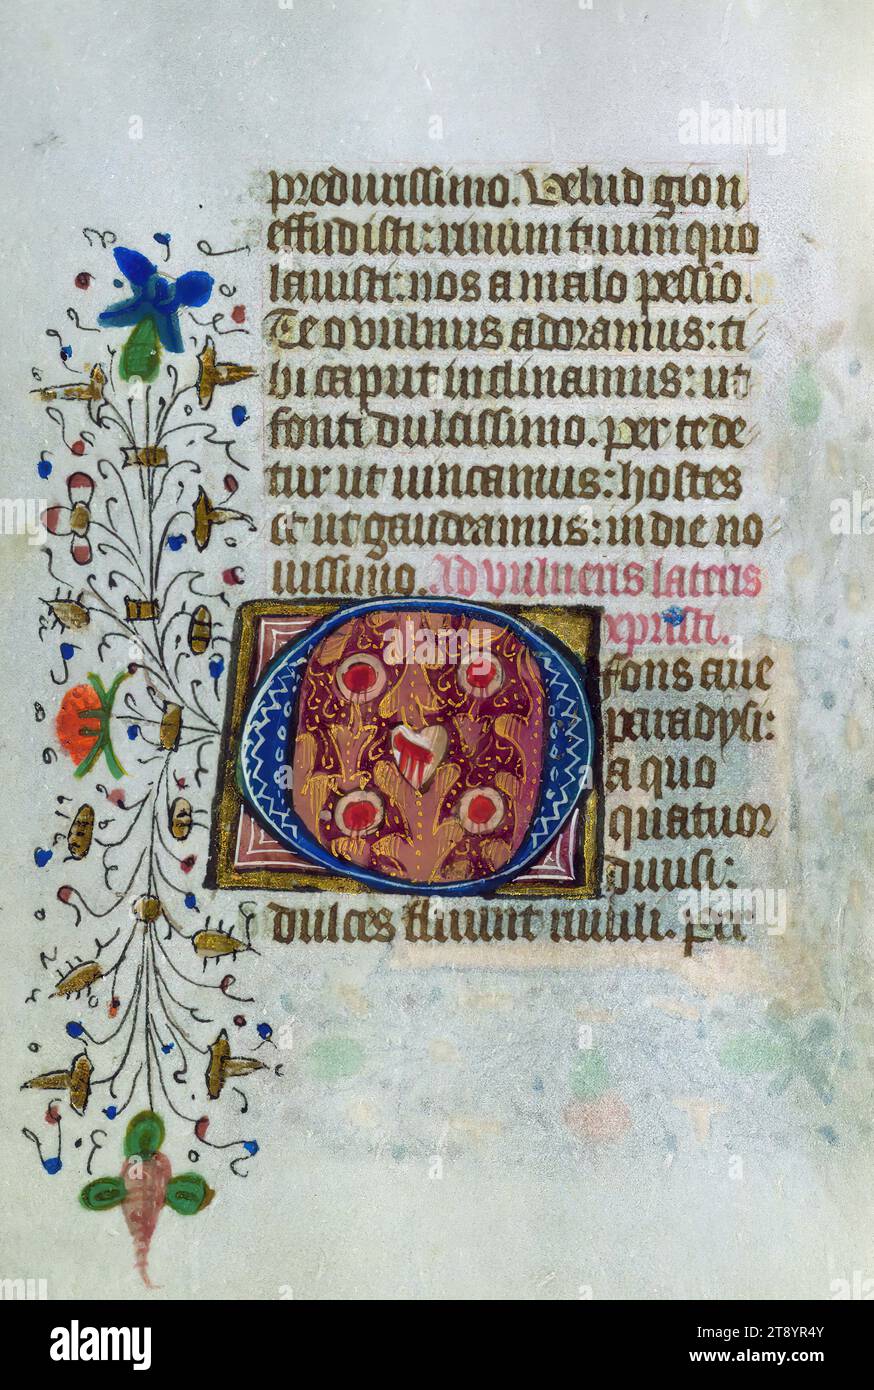 predulissimo. Velud gion
effudisti: riuum tuum quo
lauisti: nos a malo pessīo.
Te o vulnus adoramus: ti-
hi caput inclinamus: ut
fonti dulcissimo. per te de-
tur ut uincamus: hostes
et ut gaudeamus: in die no-
uissimo. Ad vulneris lateris
xpristi.
O fons aue
paradysi:
a quo
quatuor
diuisi:
dulces fluunt riuuli. per
alamy
Image ID: 2T8YR4Y
www.alamy.com